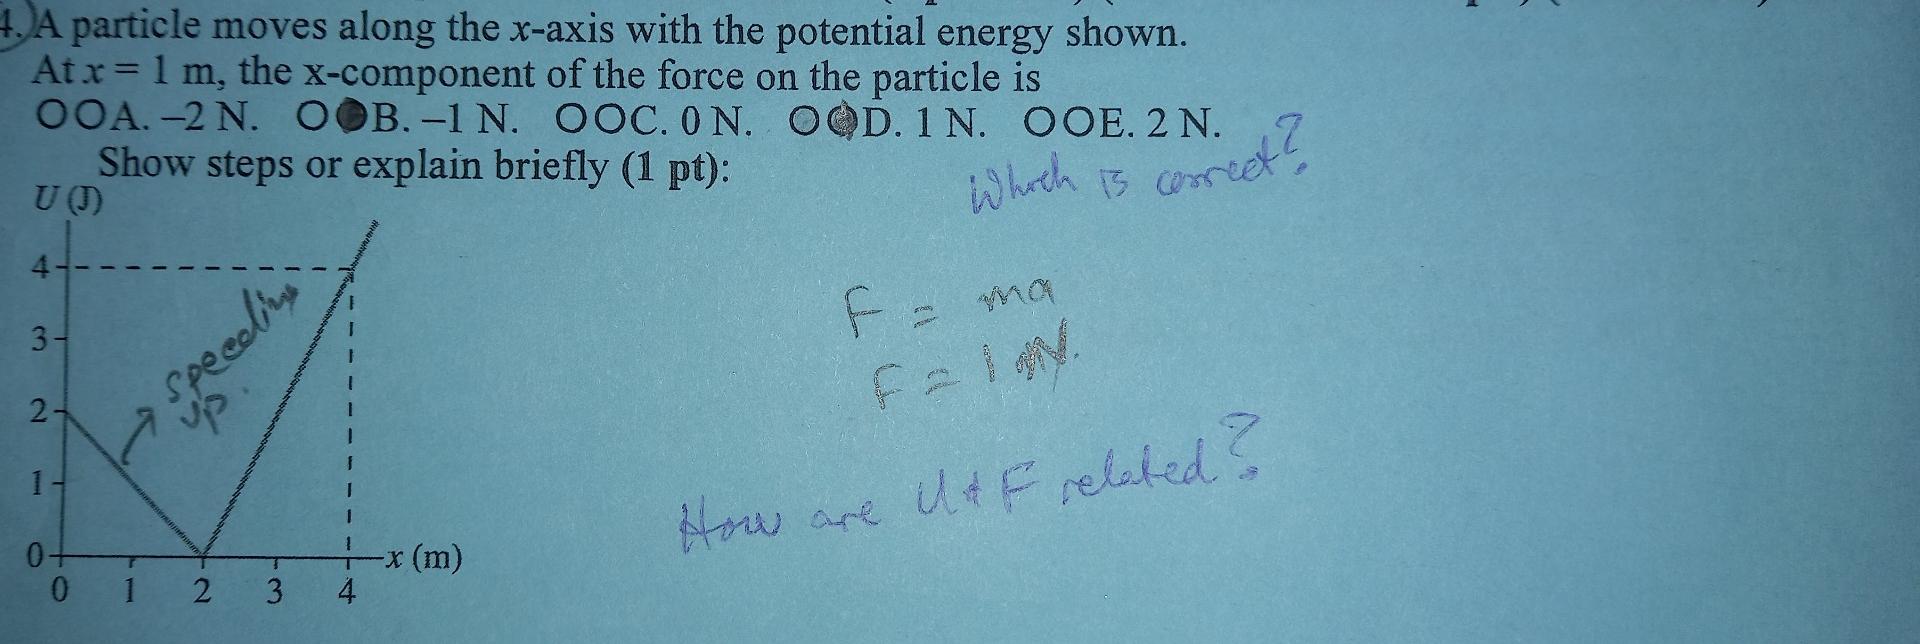 4. A particle moves along the x-axis with the potential energy shown.
At x = 1 m, the x-component of the force on the particle is
OOA. –2 N. O●B. –1 N. OOC. 0 N. O●D. 1 N. OOE. 2 N.
Show steps or explain briefly (1 pt):
Which is correct?
U (J)
4
3
2
1
0
speeding
up.
F = ma
F = 1 N.
How are U & F related?
x (m)
0 1 2 3 4